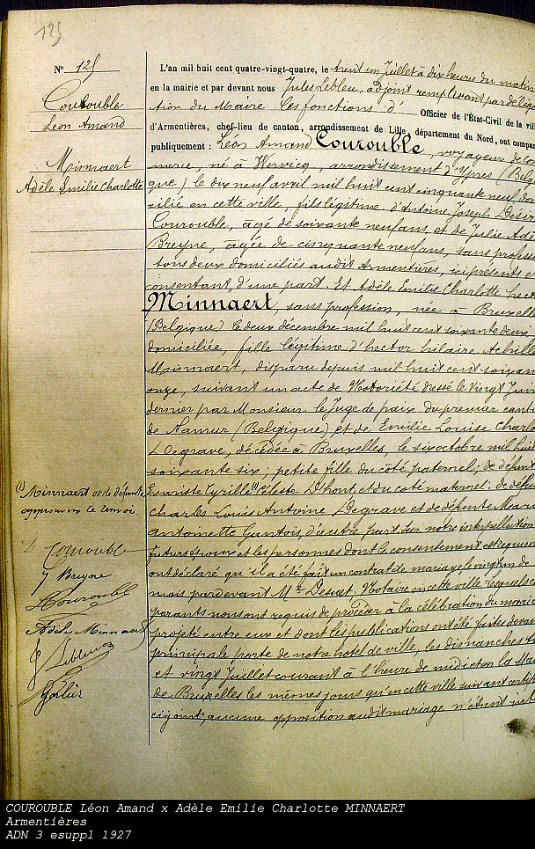 125
Nº 125
L'an mil huit cent quatre-vingt-quatre, le trente un Juillet à dix heures du matin
en la mairie et par devant nous Jules Lebleu, adjoint remplissant par déléga
tion du Maire les fonctions d' Officier de l'État-Civil de la vil
d'Armentières, chef-lieu de canton, arrondissement de Lille, département du Nord, ont compar
publiquement : Léon Amand Courouble, voyageur de com
merce, né à Wervicq, arrondissement d'Ypres (Belgi
que) le dix neuf avril mil huit cent cinquante neuf, dom
cilié en cette ville, fils légitime d'Antoine Joseph Désir
Courouble, agé de soixante neuf ans, et de Julie Adè
Breyne, agée de cinquante neuf ans, sans profess
tous deux domiciliés audit Armentières, ici présents et
consentant, d'une part. Et Adèle Emilie Charlotte
Minnaert, sans profession, née à Bruxelle
(Belgique) le deux décembre mil huit cent soixante deux
domiciliée, fille légitime d'hector hilaire Achille
Minnaert, disparu depuis mil huit cent soixan
onze, suivant un acte de Notoriété dressé le vingt Juin
dernier par Monsieur le Juge de paix du premier cant
de Namur (Belgique) et de Emilie Louise Charlo
Degrave, décédée à Bruxelles, le six octobre mil huit
soixante six ; petite fille du côté paternel ; de défunt
Evariste Cyrille (1) Céleste Dhont, et du côté maternel ; de défu
Charles Louis Antoine Degrave et de défunte Marie
antoinette Gantois, d'autre part. Sur notre interpellation
futurs époux et les personnes dont le consentement est requis
ont déclaré qu'il a été fait un contrat de mariage le vingt un de
mois par devant Me Desaet, Notaire en cette ville. Lesquels co
parants nous ont requis de procéder à la célébration du mari
projeté entre eux et dont les publications ont été faites devant
principale porte de notre hôtel de ville, les dimanches
et vingt Juillet courant à l'heure de midi et en la Mai
de Bruxelles les mêmes jours qu'en cette ville suivant certif
ci joint, aucune opposition audit mariage n'étant
Courouble
Léon Amand
Minnaert
Adèle Emilie Charlotte
(1) Minnaert et de défunte
approuvons le renvoi
Courouble
J Breyne
Courouble
Adèle Minnaert
COUROUBLE Léon Amand x Adèle Emilie Charlotte MINNAERT
Armentières
ADN 3 esuppl 1927